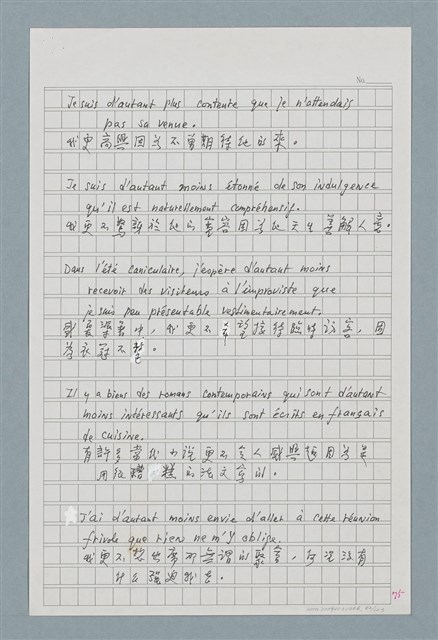 No.
Je suis d'autant plus contente que je n'attendais
pas sa venue.
我更高興因為不曾期待他的來。
Je suis d'autant moins étonné de son indulgence
qu'il est naturellement compréhensif.
我更不驚訝於他的寬容因為他天生善解人意。
Dans l'été caniculaire, j'espère d'autant moins
recevoir des visiteurs à l'improviste que
je suis peu présentable vestimentairement.
盛夏溽暑中,我更不希望接待臨時訪客,因
為衣冠不整。
Il y a biens des romans contemporains qui sont d'autant
moins intéressants qu'ils sont écrits en français
de cuisine.
有許多當代小說更不令人感興趣因為是
用極糟糕的法文寫的。
J'ai d'autant moins envie d'aller à cette réunion
frivole que rien ne m'y oblige.
我更不想出席那無謂的聚會,何況沒有
什么強迫我去。
75